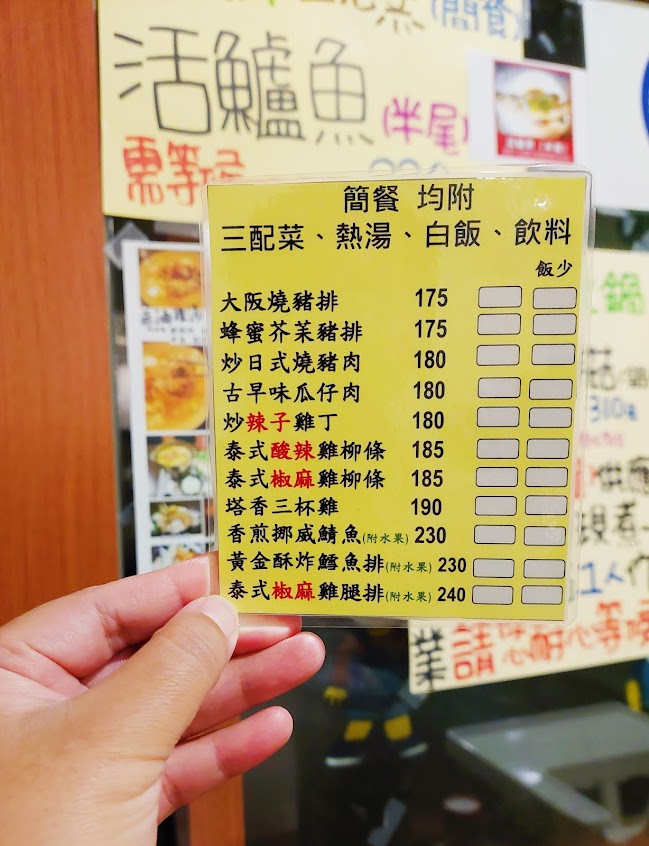 (簡食)
活鱸魚(半尾)
需等候
簡餐 均附
三配菜、熱湯、白飯、飲料
飯少
大阪燒豬排 175
蜂蜜芥茉豬排 175
炒日式燒豬肉 180
古早味瓜仔肉 180
炒辣子雞丁 180
泰式酸辣雞柳條 185
泰式椒麻雞柳條 185
塔香三杯雞 190
香煎挪威鯖魚(附水果) 230
黃金酥炸鱈魚排(附水果) 230
泰式椒麻雞腿排(附水果) 240
鍋
菇
310
供應
現煮
1人
業請您耐心等